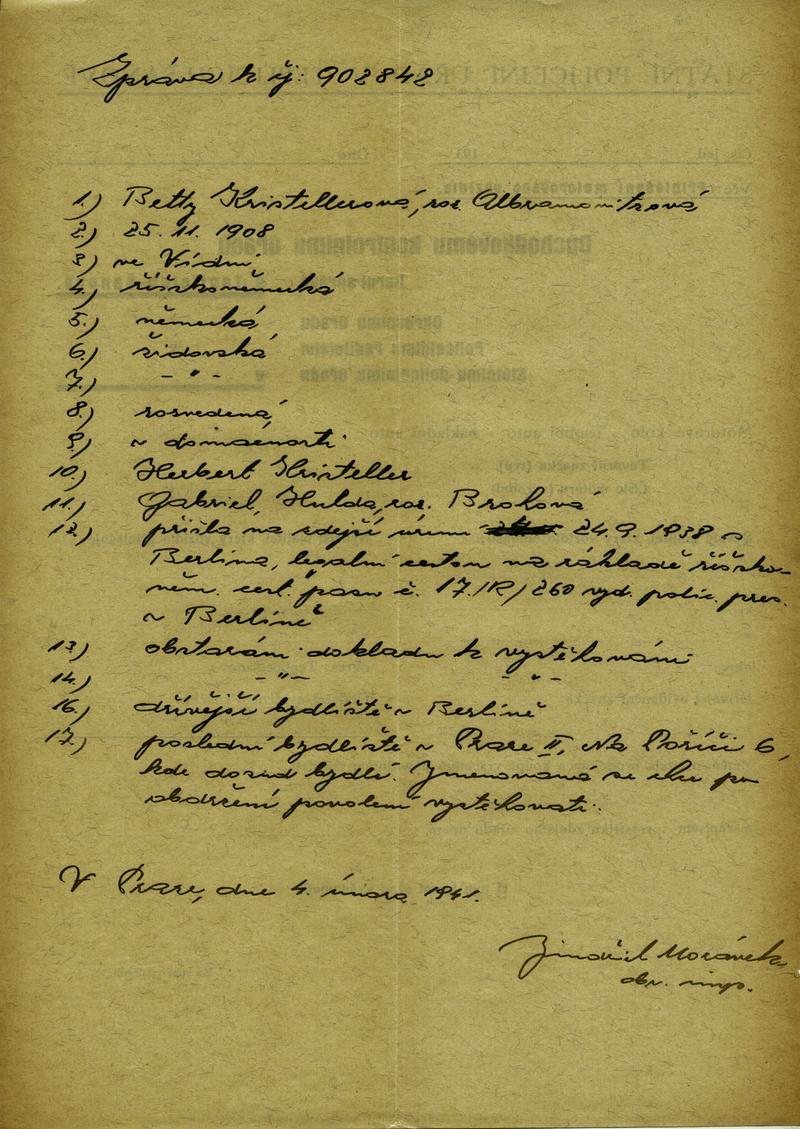 Zpráva k čj: 902842
1.) Betty Kristellerová, roz. Abramowitzová
2.) 25. 11. 1908
3) ve Vídni
4.) říšskoněmecká
5.) německá
6.) židovská
7.) - " -
8.) rozvedená
9.) v domácnosti
10.) Herbert Kristeller
11.) Gabriel, Hulda, roz. Brohová
12.) přišla na zdejší území 24.9. 1938 z
Berlína, legální cestou na základě říšsko-
něm. cest. pasu č. 17./R/260 vyd. polic. pres.
v Berlíně
13.) obstarání dokladu k vystěhování
14.) - " - - " -
16.) dřívější bydliště v Berlíně
17.) poslední bydliště v Praze II, Na Poříčí 6,
kde dosud bydlí. Jmenovaná se chce po
obdržení povolení vystěhovati.
V Praze, dne 4. února 1941.
Jindřich Morávek
obv. insp.